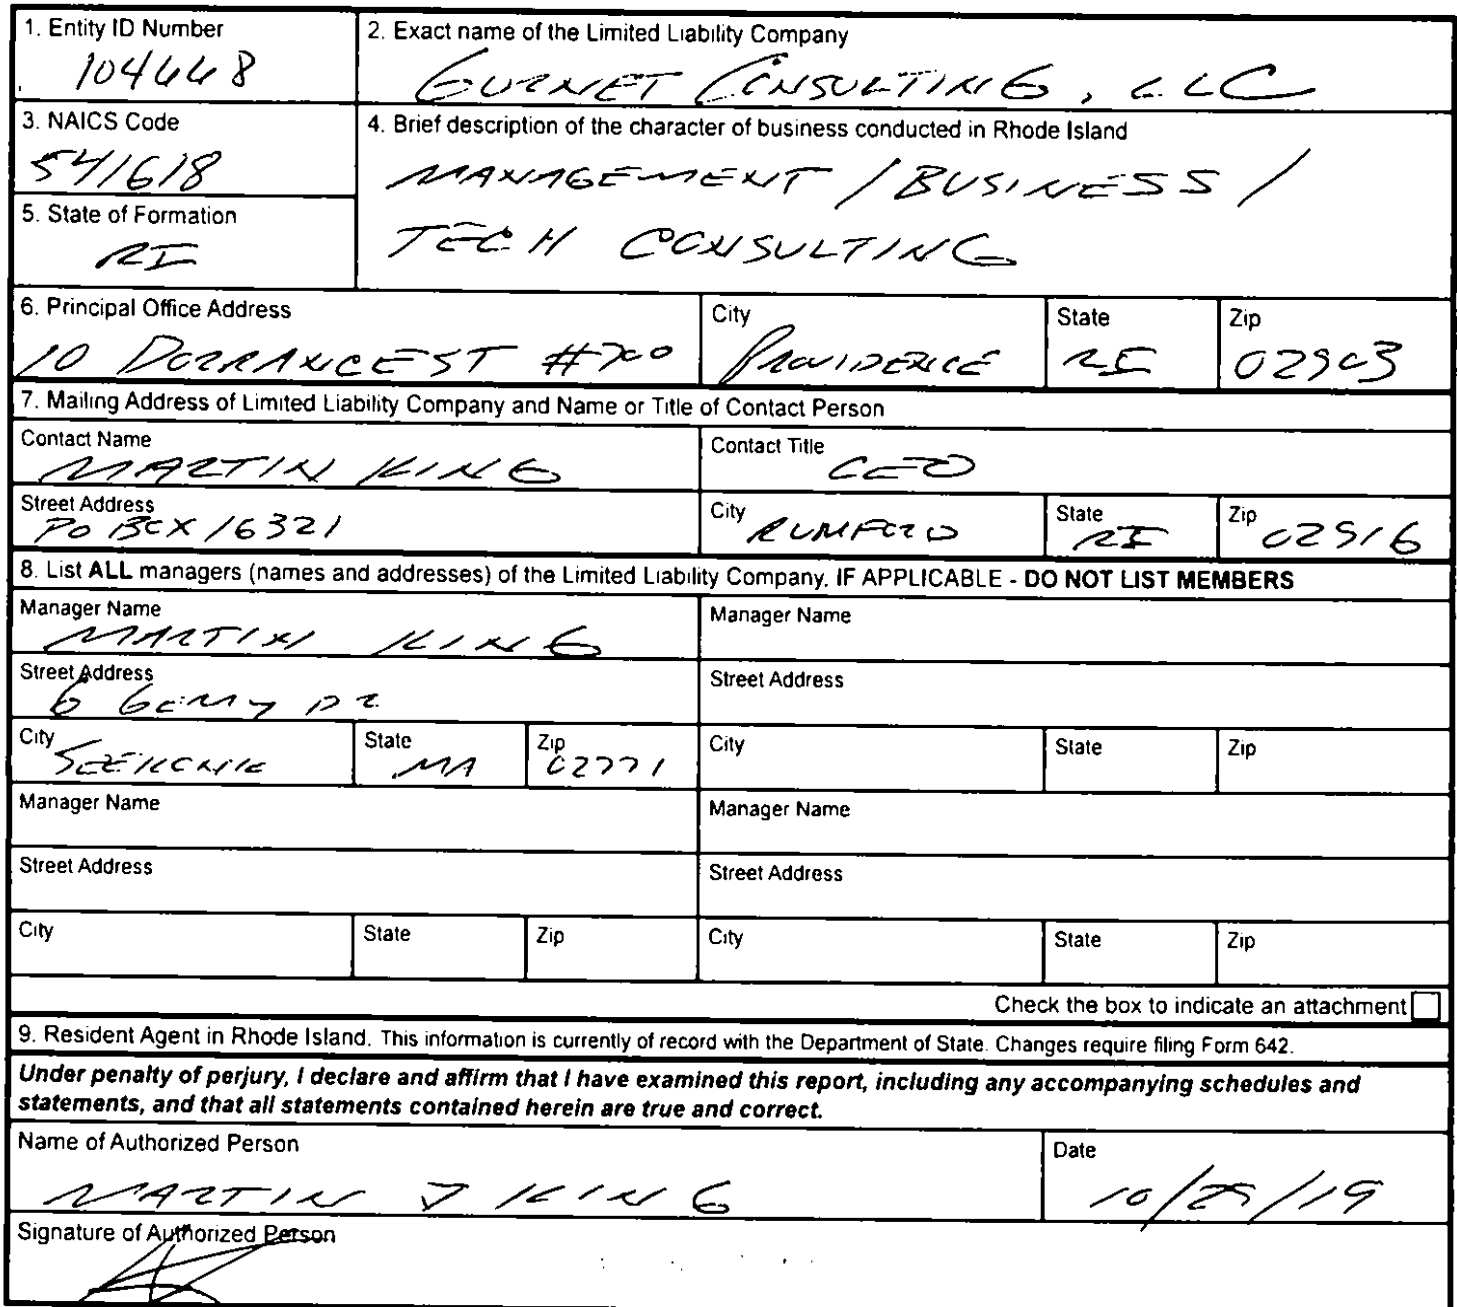 1. Entity ID Number
104448
2. Exact name of the Limited Liability Company
GURNET CONSULTING, LLC
3. NAICS Code
541618
4. Brief description of the character of business conducted in Rhode Island
MANAGEMENT / BUSINESS /
TECH CONSULTING
5. State of Formation
RI
6. Principal Office Address
10 DORRANCE ST #700
City
PROVIDENCE
State
RI
Zip
02903
7. Mailing Address of Limited Liability Company and Name or Title of Contact Person
Contact Name
MARTIN KING
Contact Title
CEO
Street Address
PO BOX 16321
City
RUMFORD
State
RI
Zip
02916
8. List ALL managers (names and addresses) of the Limited Liability Company, IF APPLICABLE - DO NOT LIST MEMBERS
Manager Name
MARTIN KING
Manager Name
Street Address
6 DR
Street Address
City
SEEKONK
State
MA
Zip
02771
City
State
Zip
Manager Name
Manager Name
Street Address
Street Address
City
State
Zip
City
State
Zip
Check the box to indicate an attachment
9. Resident Agent in Rhode Island. This information is currently of record with the Department of State. Changes require filing Form 642.
Under penalty of perjury, I declare and affirm that I have examined this report, including any accompanying schedules and
statements, and that all statements contained herein are true and correct.
Name of Authorized Person
MARTIN J KING
Date
10/29/19
Signature of Authorized Person